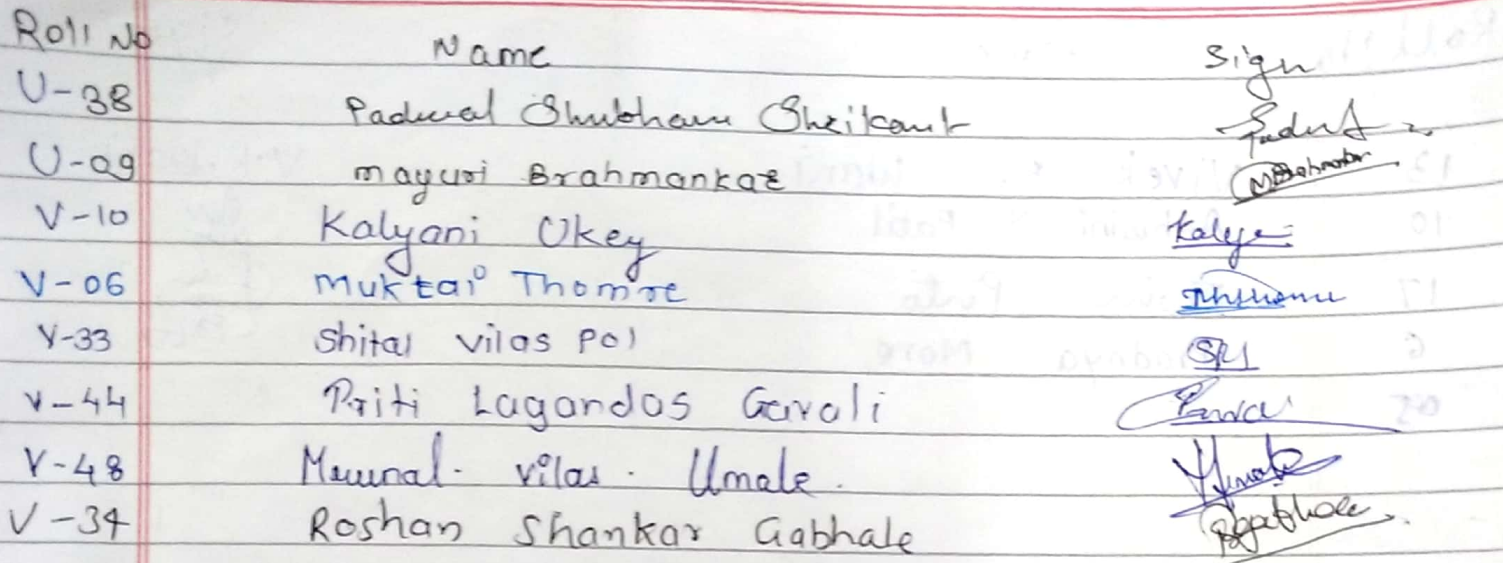 Roll No Name Sign
U-38 Padwal Shubham Shrikant
U-09 mayuri Brahmankar
V-10 Kalyani Ukey Kalya
V-06 Muktai Thomre
V-33 Shital vilas pol
V-44 Priti Lagandas Gavali
V-48 Mrunal. vilas. Umale.
V-34 Roshan Shankar Gabhale Rgabhale